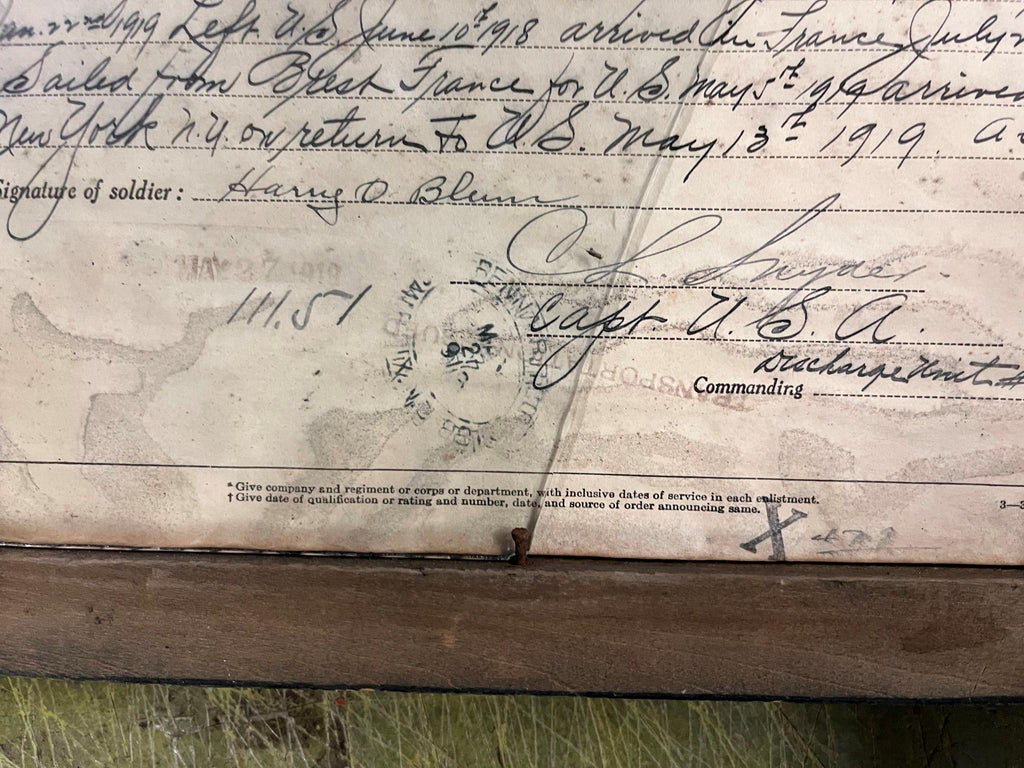 1919 Left U.S. June 10th 1918 arrived in France July
Sailed from Brest France for U.S. May 5th 1919 arrived
New York N.Y. on return to U.S. May 13th 1919.
Signature of soldier: Harry O Blum
Snyder
MAY 27 1919
111.51
Capt. U.S.A.
Discharge Unit #
TRANSPORT
Commanding
*Give company and regiment or corps or department, with inclusive dates of service in each enlistment.
†Give date of qualification or rating and number, date, and source of order announcing same.
3—3
X